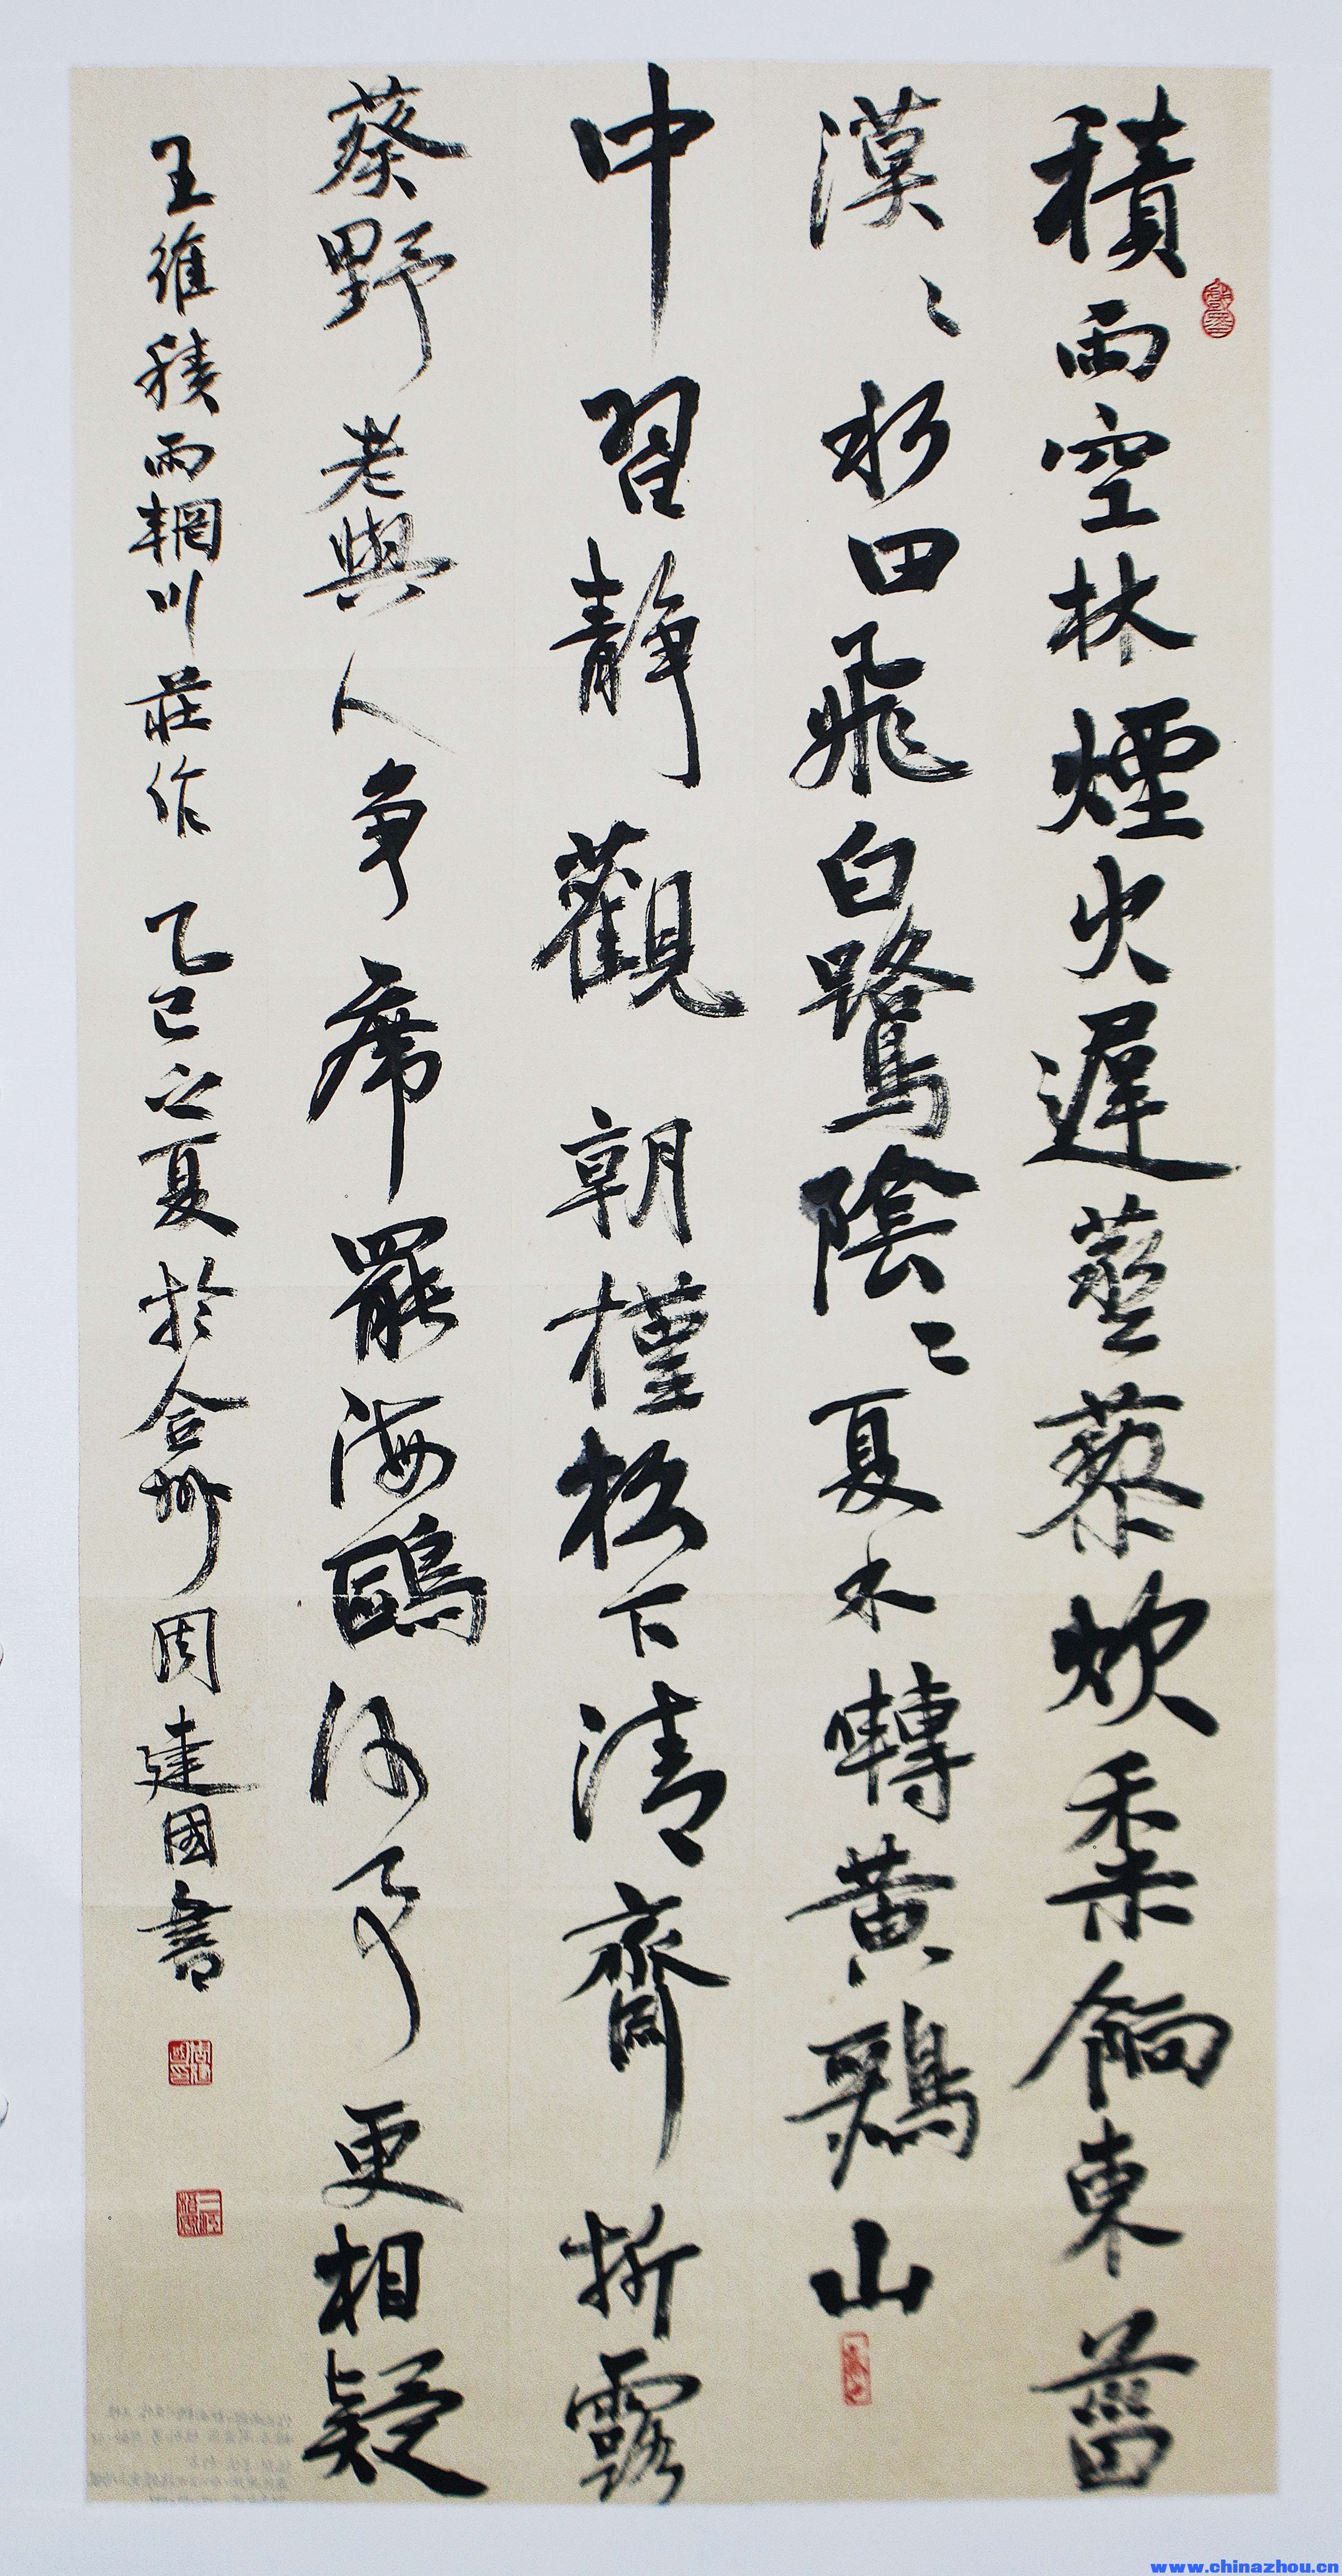 積雨空林煙火遲蒸藜炊黍餉東菑
漠〻水田飛白鷺陰〻夏木囀黄鸝山
中習靜觀朝槿松下清齋折露
葵野老與人争席罷海鷗何事更相疑
王維積雨輞川莊作 乙巳之夏於合州周建國書
www.chinazhou.cn